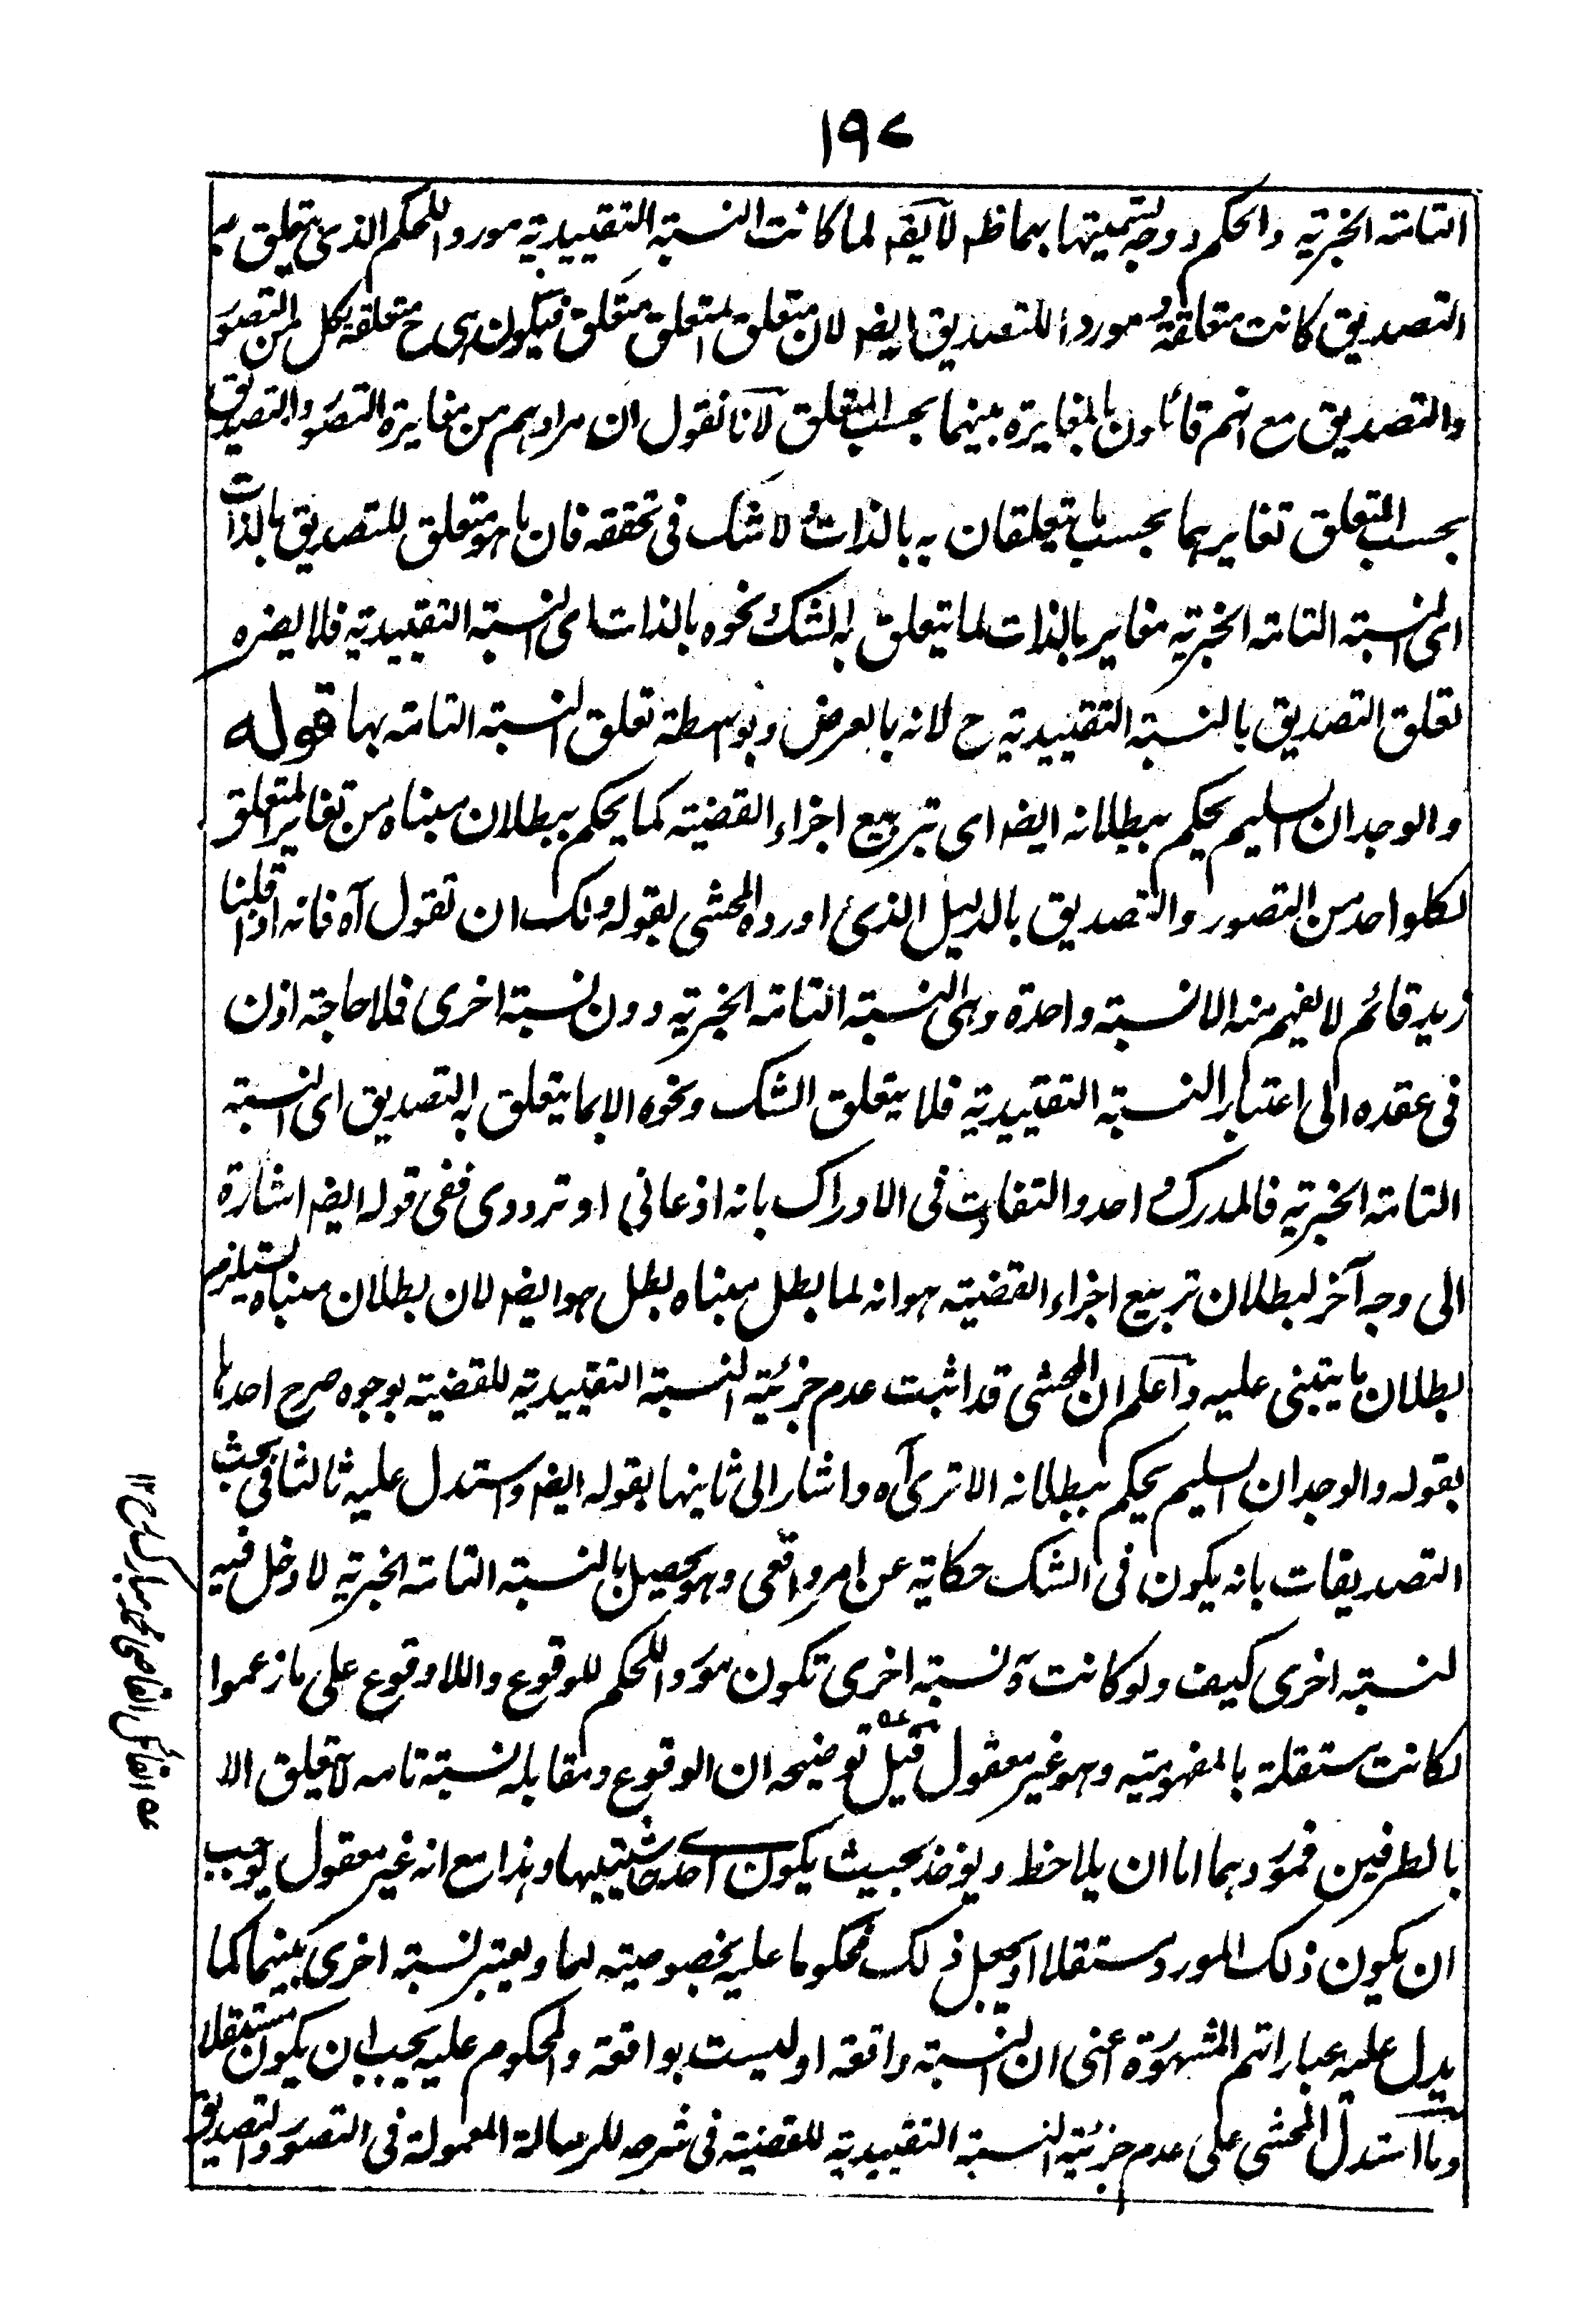 ١٩٧
التامة الخبرية والحكم ووجه تسميتها بهما ظه لا يقه لما كانت النسبة التقييدية موردا للحكم الذي يتعلق به
التصديق كانت متعلقة وموردا للتصديق ايضه لان متعلق المتعلق متعلق فيكون هي ح متعلقة لكل من التصور
والتصديق مع انهم قائلون بالمغايرة بينهما بحسب المتعلق لانا نقول ان مرادهم من مغايرة التصور والتصديق
بحسب المتعلق تغايرهما بحسب ما يتعلقان به بالذات ولا شك في تحققه فان ما هو متعلق للتصديق بالذات
اي النسبة التامة الخبرية مغاير بالذات لما يتعلق به الشك ونحوه بالذات اي النسبة التقييدية فلا يضره
تعلق التصديق بالنسبة التقييدية ح لانه بالعرض وبواسطة تعلق النسبة التامة بها قوله
والوجدان السليم يحكم ببطلانه ايضه اي تربيع اجزاء القضية كما يحكم ببطلان مبناه من تغاير المتعلق
لكل واحد من التصور والتصديق بالدليل الذي اورده المحشي بقوله ولك ان تقول آه فانه اذا قلنا
زيد قائم لا يفهم منه الا نسبة واحدة وهي النسبة التامة الخبرية دون نسبة اخرى فلا حاجة اذن
في عقده الى اعتبار النسبة التقييدية فلا يتعلق الشك ونحوه الا بما يتعلق به التصديق اي النسبة
التامة الخبرية فالمدرك واحد والتفاوت في الادراك بانه اذعاني او ترددي ففي قوله ايضه اشارة
الى وجه آخر لبطلان تربيع اجزاء القضية هو انه لما بطل مبناه بطل هو ايضه لان بطلان مبناه يستلزم
بطلان ما يبتنى عليه واعلم ان المحشي قد اثبت عدم جزئية النسبة التقييدية للقضية بوجوه صرح احدها
بقوله والوجدان السليم يحكم ببطلانه الا ترى آه واشار الى ثانيها بقوله ايضه واستدل عليه ثالثا في بحث
التصديقات بانه يكون في الشك حكاية عن امر واقعي وهو يحصل بالنسبة التامة الخبرية لا دخل فيه
لنسبة اخرى كيف ولو كانت ة نسبة اخرى تكون موردا للحكم للوقوع واللاوقوع على ما زعموا
لكانت مستقلة بالمفهومية وهو غير معقول قيل عه توضيحه ان الوقوع ومقابله نسبة تامه لا تعلق الا
بالطرفين فموردهما اما ان يلاحظ ويوخذ بحيث يكون احدى حاشيتيها وهذا مع انه غير معقول يوجب
ان يكون ذلك المورد مستقلا او يجعل ذلك محكوما عليه بخصوصيته لهما ويعتبر نسبة اخرى بينهما كما
يدل عليه عباراتهم المشهورة اعني ان النسبة واقعة او ليست بواقعة والمحكوم عليه يجب ان يكون مستقلا
وما استدل المحشي على عدم جزئية النسبة التقييدية للقضية في شرحه للرسالة المعمولة في التصور والتصديق
عه القائل القاضي محمد مبارك رح ١٢